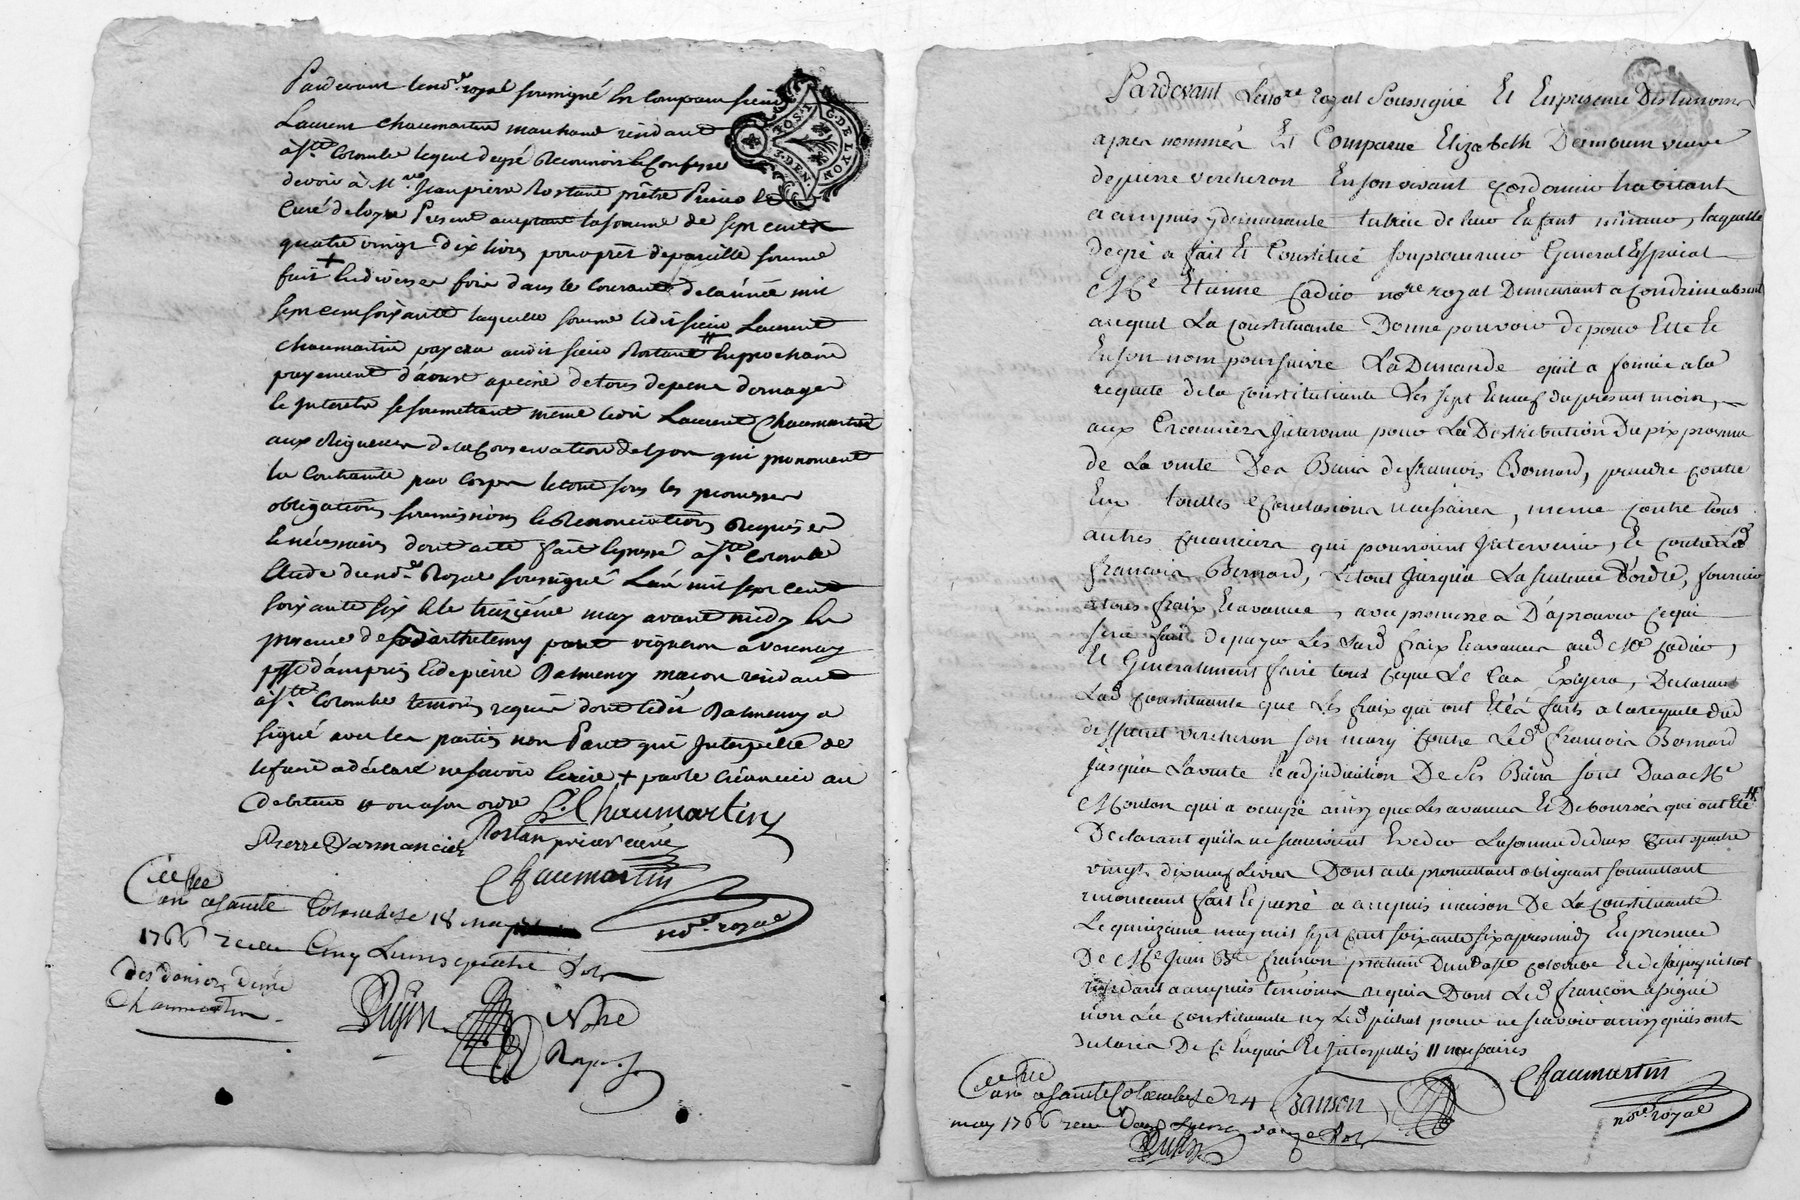 Pardevant le no.re royal soussigné en comparu sieur
Laurent Chaumartin marchand résidant
à S.te Colombe lequel de gré Reconnoit & Confesse
devoir à M.re Jean pierre Rostant prêtre Prieur &
Curé de loyre Present acceptant la somme de sept cents
quatre vingt dix livres pour prêt de pareille somme
fait + en diverses fois dans le Courant de lannée mil
sept cent soixante laquelle somme ledit sieur Laurent
Chaumartin payera audit sieur Rostant # en prochain
payement d'aoust a peine de tous depens domages
& Interets se soumettant même ledit Laurent Chaumartin
aux Rigueurs de la Conservation de Lyon qui prononcent
la Contrainte par Corps le tout sous les promesses
obligations soumissions & Renonciations Requises
& nécessaires dont acte fait & passé à S.te Colombe
Etude du no.re Royal soussigné L'an mil sept cent
soixante six & le treizième may avant midy En
presence de Barthelemy paret vigneron a Verenay
psse d'ampuis & de pierre Darmency macon résidant
à S.te Colombe temoins requis dont ledit Darmency a
signé avec les parties non Paret qui Interpellé de
le faire a déclaré ne savoir écrire + par le créancier au
debiteur # ou a son ordre L. Chaumartin
Pierre Darmancier Rostan prieur curé
Chaumartin
no.re royal
Cllé
Con a sainte Colombe le 18 may
1766 receu Cinq Livres quatre sols
des deniers de me
Chaumartin
Dujon Notre
Royal
POSI. G. DE LYON
3. DEN.
Pardevant Le no.re royal Soussigné Et En presence Des temoins
apres nommés Et Comparue Elizabeth Dermoum veuve
de pierre vercheron En son vivant Cordonnier habitant
a ampuis y demeurante tutrice de leur Enfant mineur, laquelle
de gré a fait Et Constitué son procureur General & special
M.e Etienne Cadier no.re royal Demeurant a Condrieu absent
auquel La Constituante Donne pouvoir de pour Elle &
En son nom poursuivre La Demande qu'il a formée a la
requete de la Constituante Les sept & neuf du present mois,
aux Creanciers Intervenu pour La Distribution Du pix provenu
de La vente Des Biens de francois Bernard, prendre contre
Eux touttes Conclusions necessaires, meme contre tous
autres Creanciers qui pourroient Intervenir, & contre Led
francois Bernard, Le tout Jusqu'a La sentence D'ordre, fournir
a tous fraix & avances, avec promesse D'aprouver ce qui
sera fait de payer Les sud fraix & avances aud M.e Cadier,
Et Generalement faire tout ce que Le Cas Exigera, Declarant
Lad Constituante que Les fraix qui ont Eté faits a la requete dud
deffunt vercheron son mary Contre Led francois Bernard
Jusqu'a La vente & adjudication De Ses Biens sont Dus a M.e
Mouton qui a occupé ainsy que Les avances Et Deboursés qui ont Eté #
Declarant qu'ils ne scauroient Exceder La somme de deux Cent quatre
vingt dix neuf Livres Dont acte promettant obligeant soumettant
renoncant fait & passé a ampuis maison De La Constituante
Le quinzième may mil sept cent soixante six apres midy En presence
De M.e Jean B.te françon praticien Dud S.te Colombe Et de Jacques pichat
residant a ampuis temoins requis Dont Led françon a signé
non La Constituante ny Led pichat pour ne scavoir ainsy qu'ils ont
declarés De Ce Enquis Et Interpellés # necessaires
Chaumartin
no.re royal
françon
Cllé
Con a Sainte Colombe le 24
may 1766 receu Deux Livres douze sols
Dujon